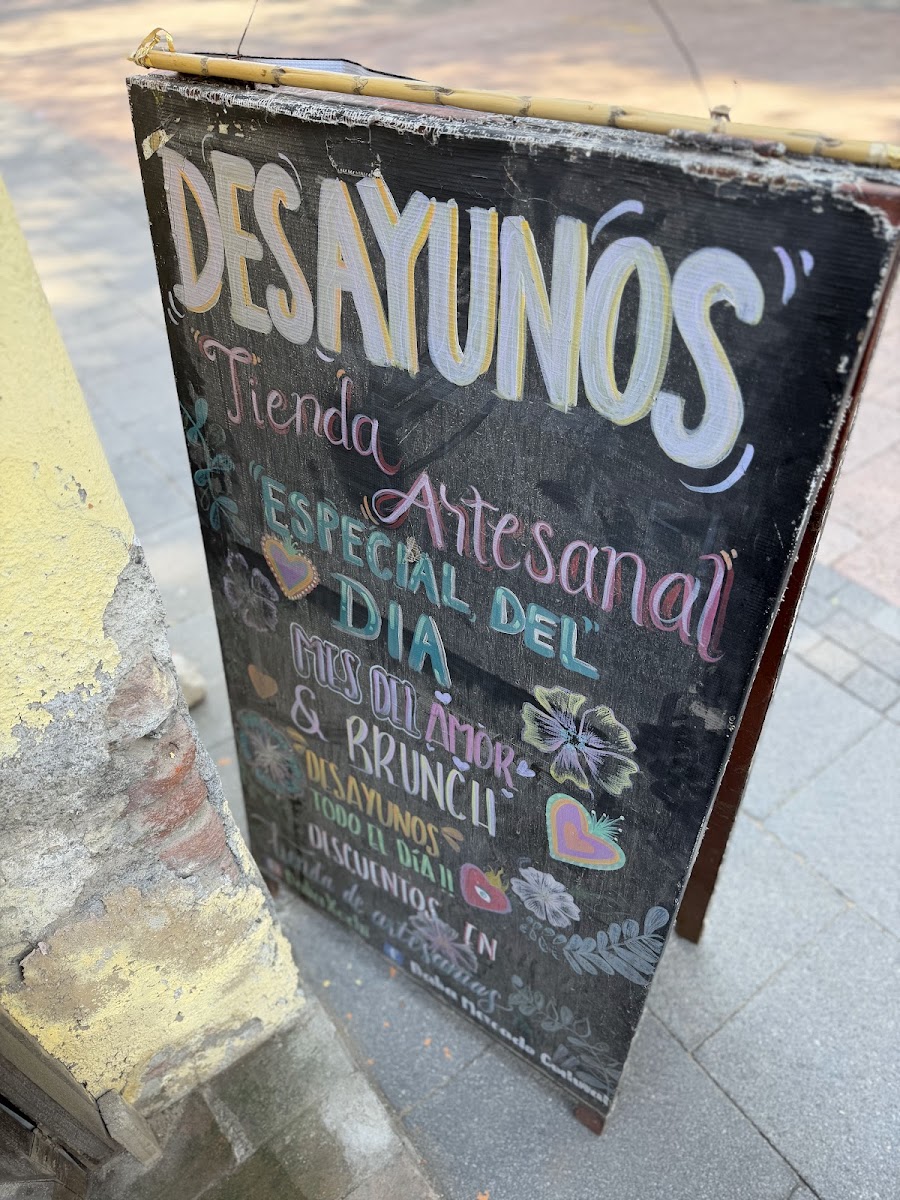 DESAYUNOS
Tienda
Artesanal
ESPECIAL DEL
DIA
MES DEL AMOR
& BRUNCH
DESAYUNOS
TODO EL DÍA!!
DESCUENTOS EN
Tienda de artesanías
Mercado